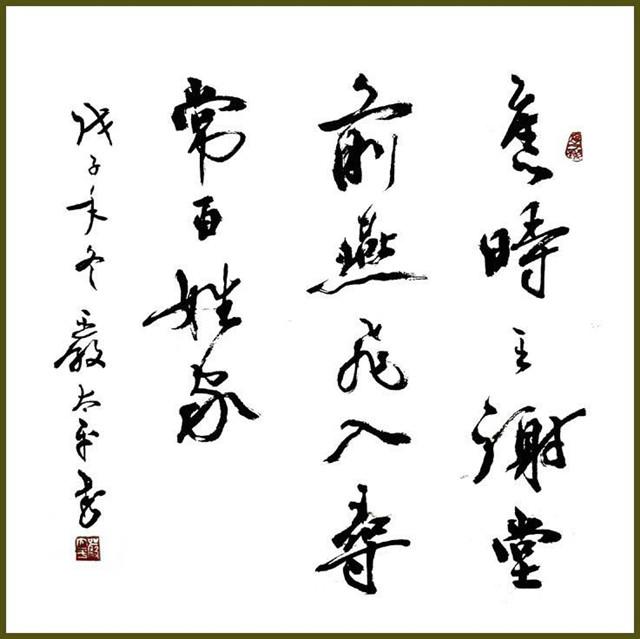 舊時王謝堂
前燕飛入尋
常百姓家
戊子年冬嚴太平書